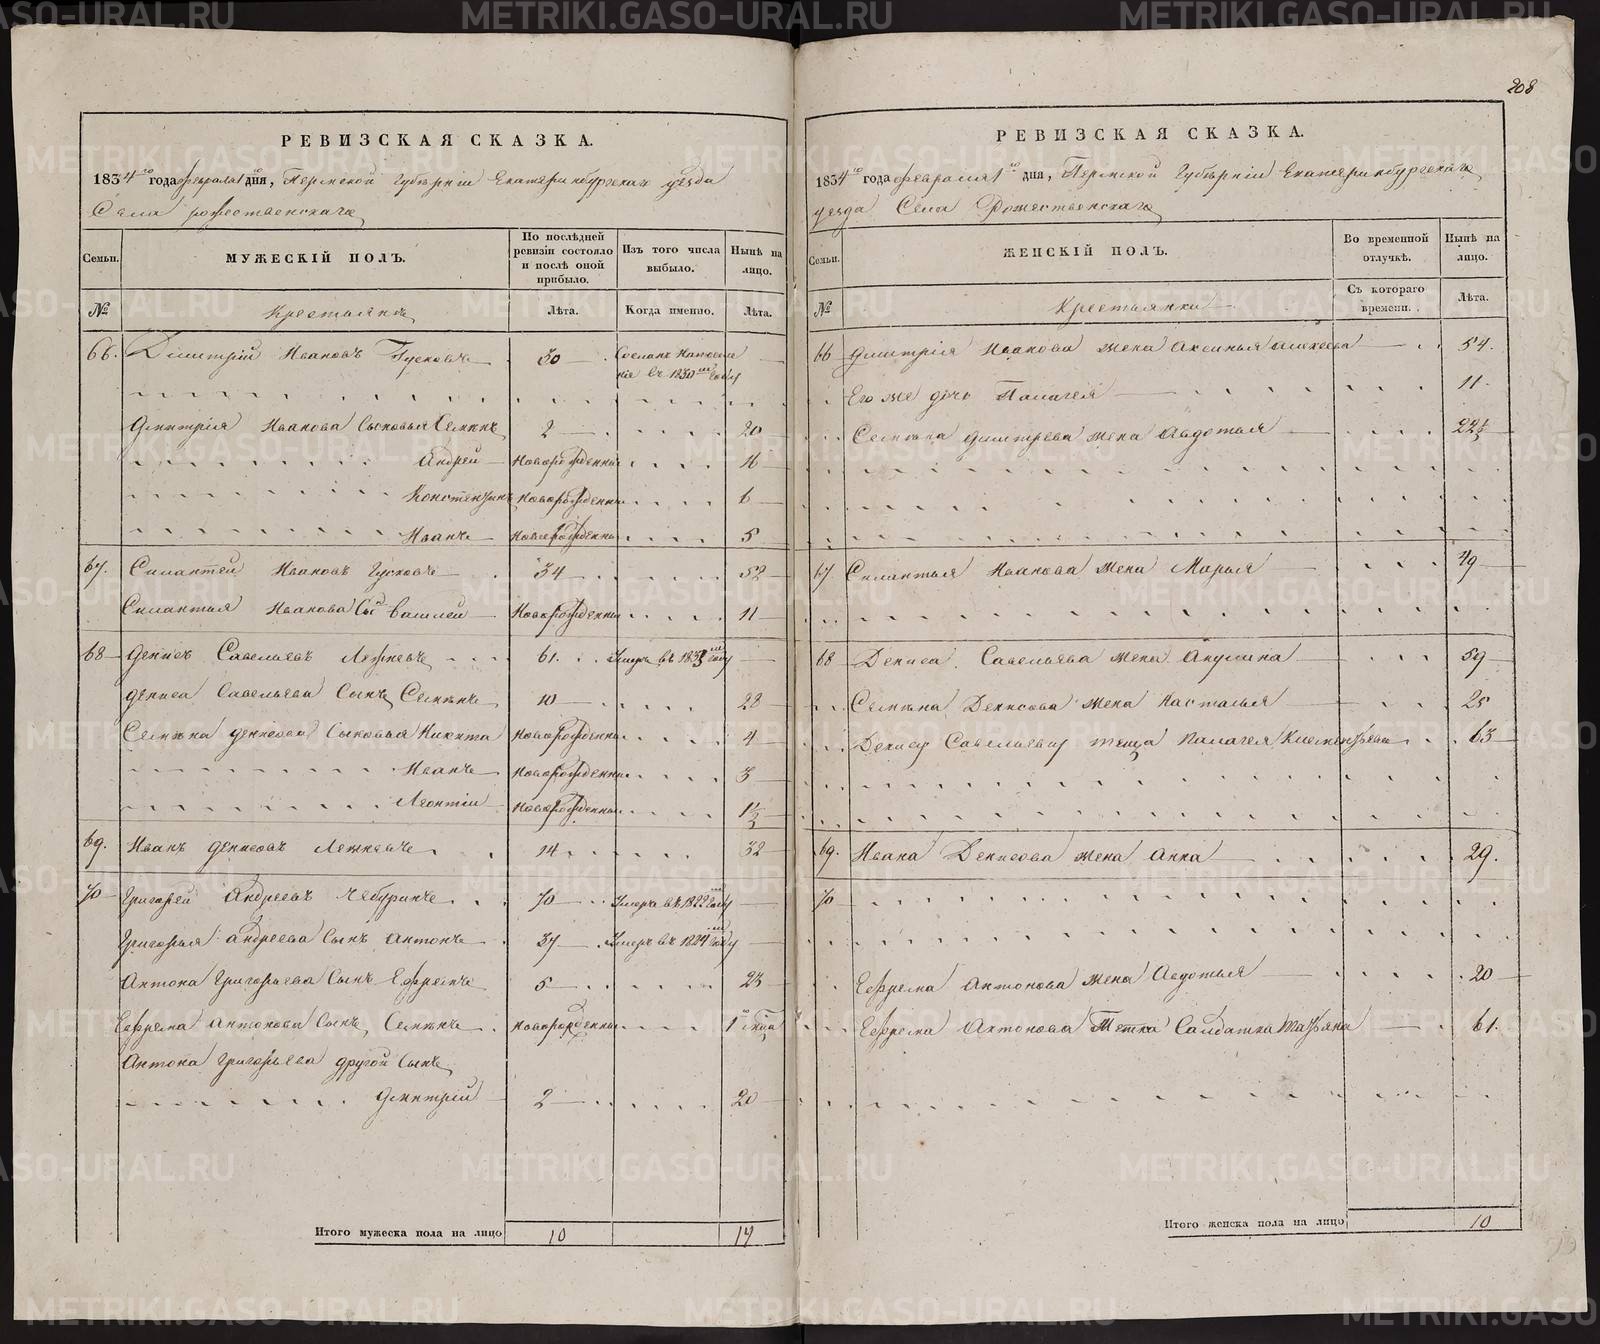 208
РЕВИЗСКАЯ СКАЗКА.
1834го года февраля 1 дня, Пермской Губерніи Екатеринбургскаго уезда
Села рожественскаго
Семьи.
МУЖЕСКІЙ ПОЛЪ.
По послѣдней ревизіи состояло и послѣ оной прибыло.
Изъ того числа выбыло.
Нынѣ на лицо.
№
Крестьянъ
Лѣта.
Когда именно.
Лѣта.
66. Дмитрій Ивановъ Гусковъ 30 Сосланъ На поселе
ніе въ 1830м году
Дмитрія Иванова Сыновья Семенъ 2 20
Андрей Новорожденны
Констентинъ Новорожденны 6
Иванъ Новорожденны 5
67. Силантей Ивановъ Гусковъ 34 52
Силантья Иванова Сынъ Новорожденны 11
68 Денисъ Савельевъ Лежневъ 61. Умеръ въ 1833м году
Дениса Савельева Сынъ Семенъ 10 28
Семена Денисова Сыновья Никита Новорожденны 4
Иванъ Новорожденны 3
Леонтій Новорожденны 1½
69. Иванъ Денисовъ Лежневъ 14 32
70 Григорей Андреевъ Чебуринъ 70 Умеръ въ 1822 году
Григорья Андреева Сынъ Антонъ 37 Умеръ въ 1824 году
Антона Григорьева Сынъ Ефремъ 5 23
Ефрема Антонова Сынъ Семенъ новорожденны 1
Антона Григорьева другой Сынъ
Дмитрій 2 20
Итого мужеска пола на лицо 10 14
РЕВИЗСКАЯ СКАЗКА.
1834го года февраля 1го дня, Пермской Губерніи Екатеринбургскаго
уезда Села Рожественскаго
Семьи.
ЖЕНСКІЙ ПОЛЪ.
Во временной отлучкѣ.
Нынѣ на лицо.
№
Крестьянки
Съ котораго времени.
Лѣта.
66 Дмитрія Иванова жена Аксинья 54.
Его же дочь Палагея 11.
Семена Дмитрева жена Авдотья
67 Силантья Иванова жена Марья 49
68 Дениса Савельева жена Акулина 59
Семена Денисова жена Настасья 25
Денису Савельеву теща Палагея 63
69. Ивана Денисова жена Анна 29.
70
Ефрема Антонова жена Авдотья 20
Ефрема Антонова Тетка Салдатка Татьяна 61.
Итого женска пола на лицо 10
METRIKI.GASO-URAL.RU